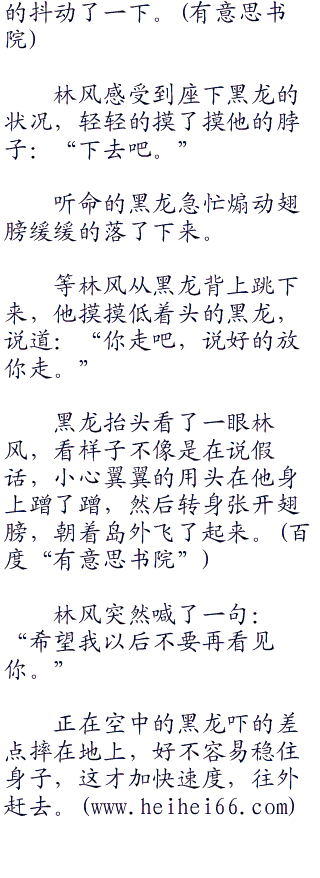 的抖动了一下。(有意思书
院)
林风感受到座下黑龙的
状况，轻轻的摸了摸他的脖
子：“下去吧。”
听命的黑龙急忙煽动翅
膀缓缓的落了下来。
等林风从黑龙背上跳下
来，他摸摸低着头的黑龙，
说道：“你走吧，说好的放
你走。”
黑龙抬头看了一眼林
风，看样子不像是在说假
话，小心翼翼的用头在他身
上蹭了蹭，然后转身张开翅
膀，朝着岛外飞了起来。(百
度“有意思书院”)
林风突然喊了一句：
“希望我以后不要再看见
你。”
正在空中的黑龙吓的差
点摔在地上，好不容易稳住
身子，这才加快速度，往外
赶去。(www.heihei66.com)